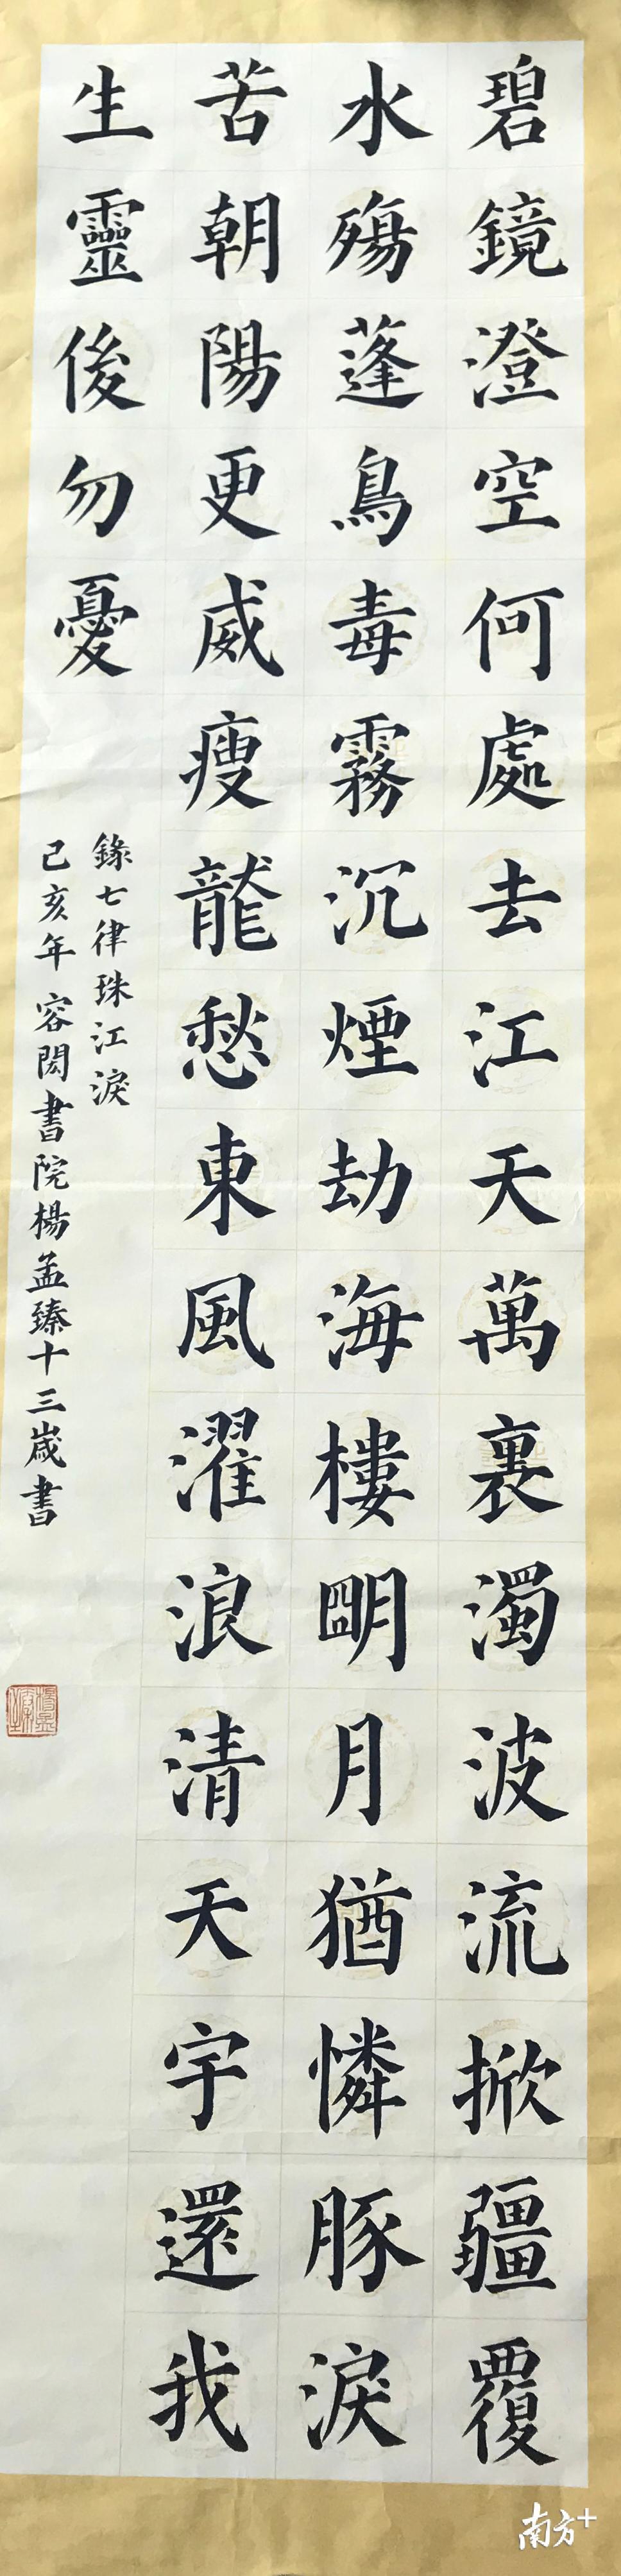 碧鏡澄空何處去江天萬裏濁波流掀疆覆
水殤蓬鳥毒霧沉煙劫海樓朙月猶憐豚淚
苦朝陽更威瘦龍愁東風濯浪清天宇還我
生靈後勿憂
錄七律珠江淚
己亥年容閎書院楊孟臻十三歲書
南方+